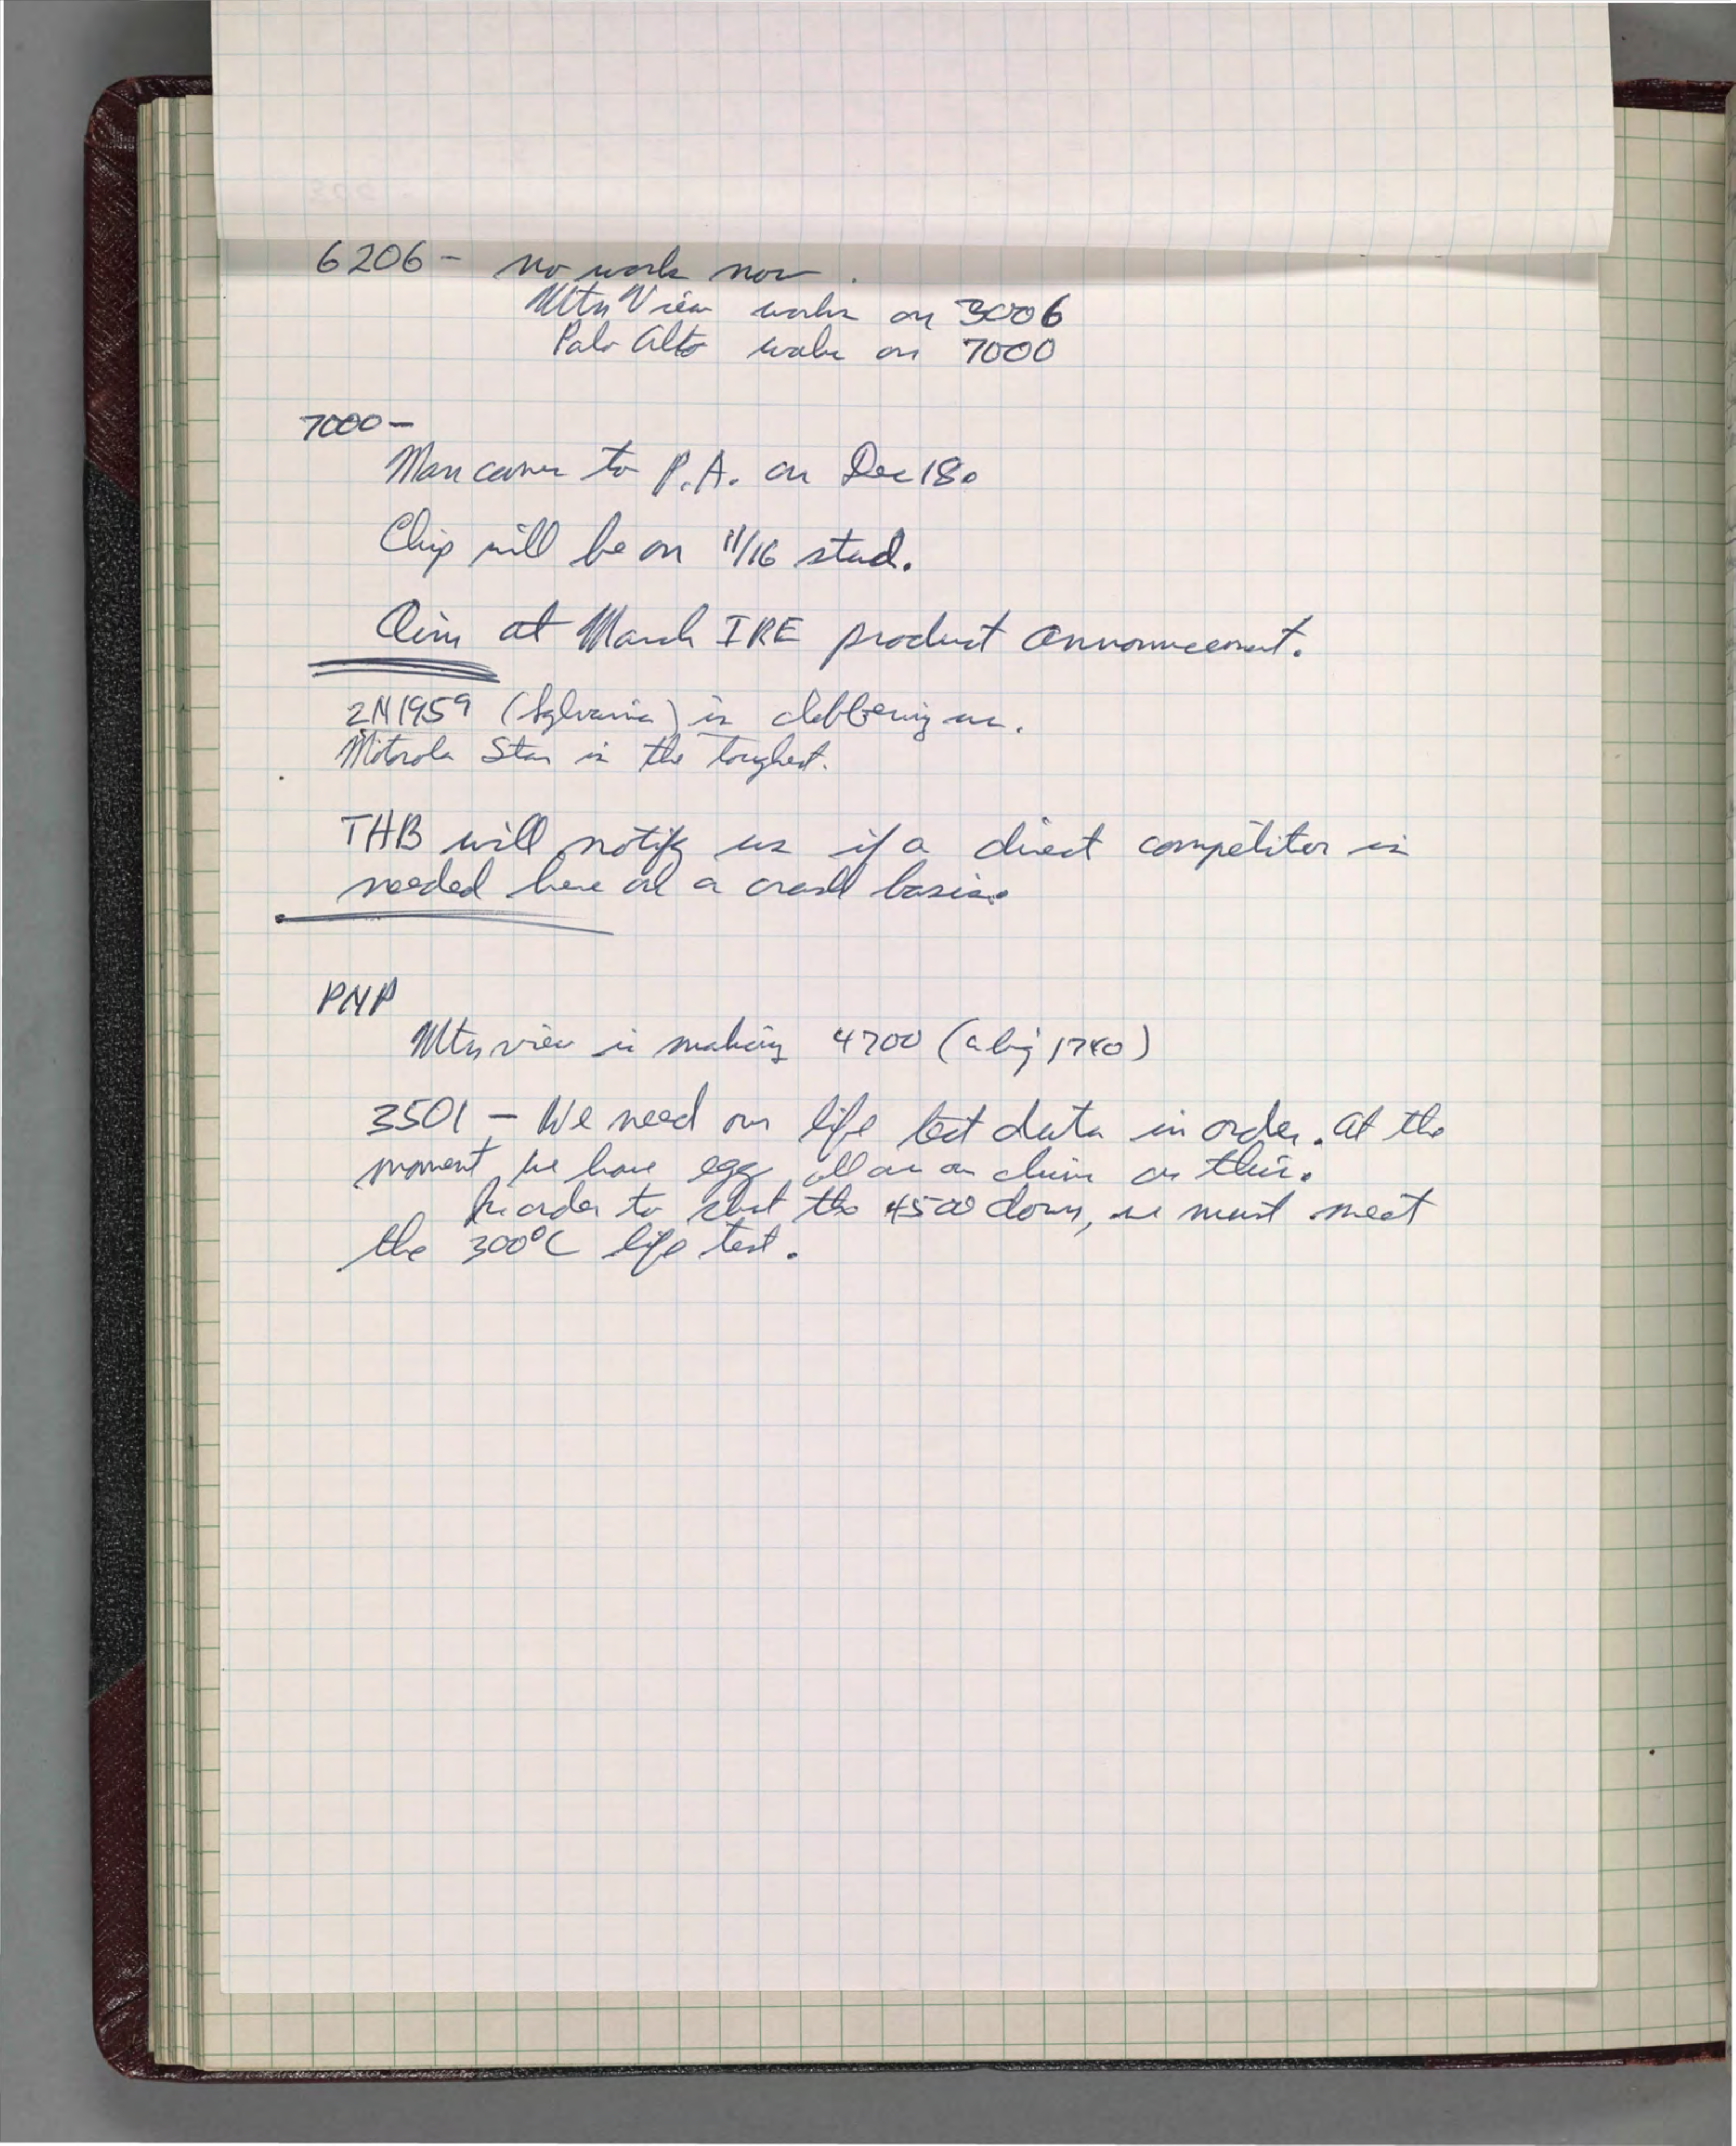 6206 - no work now.
Mtn View works on 3006
Palo Alto works on 7000
7000 -
Man comes to P.A. on Dec 18.
Chip will be on 11/16 stud.
Aim at March IRE product announcement.
2N1959 (Sylvania) is clobbering us.
Motorola Star is the toughest.
THB will notify us if a direct competitor is
needed here on a crash basis.
PNP
Mtn view is making 4700 (a big 1740)
3501 - We need our life test data in order. At the
moment, we have egg all over our chins on this.
In order to shut the 4500 down, we must meet
the 300°C life test.